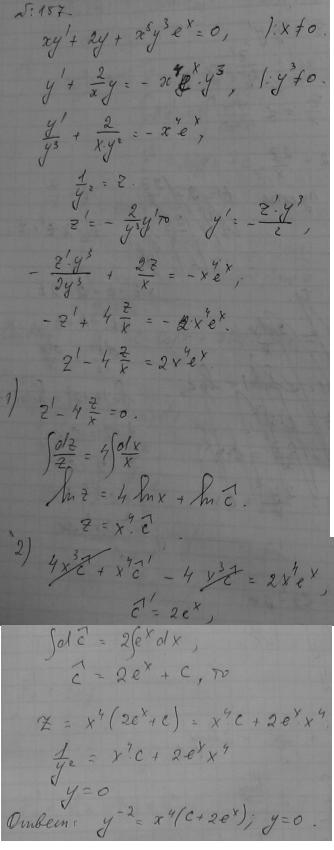 № 157.
xy' + 2y + x⁵y³eˣ = 0, |: x ≠ 0.
y' + 2/x y = - x⁴eˣ·y³, |: y³ ≠ 0.
y'/y³ + 2/(x·y²) = - x⁴eˣ,
1/y² = z.
z' = - 2/y³ y' то y' = - z'·y³/2,
- z'·y³/2y³ + 2z/x = - x⁴eˣ,
- z' + 4 z/x = - 2x⁴eˣ.
z' - 4 z/x = 2x⁴eˣ
1) z' - 4 z/x = 0.
∫ dz/z = 4∫ dx/x
ln z = 4 ln x + ln ĉ.
z = x⁴·ĉ.
2) 4x³ĉ + x⁴ĉ' - 4 x³ĉ = 2x⁴eˣ,
ĉ' = 2eˣ,
∫dĉ = 2∫eˣdx,
ĉ = 2eˣ + c, то
z = x⁴(2eˣ + c) = x⁴c + 2eˣx⁴
1/y² = x⁴·c + 2eˣx⁴
y = 0
Ответ: y⁻² = x⁴(c + 2eˣ); y = 0.